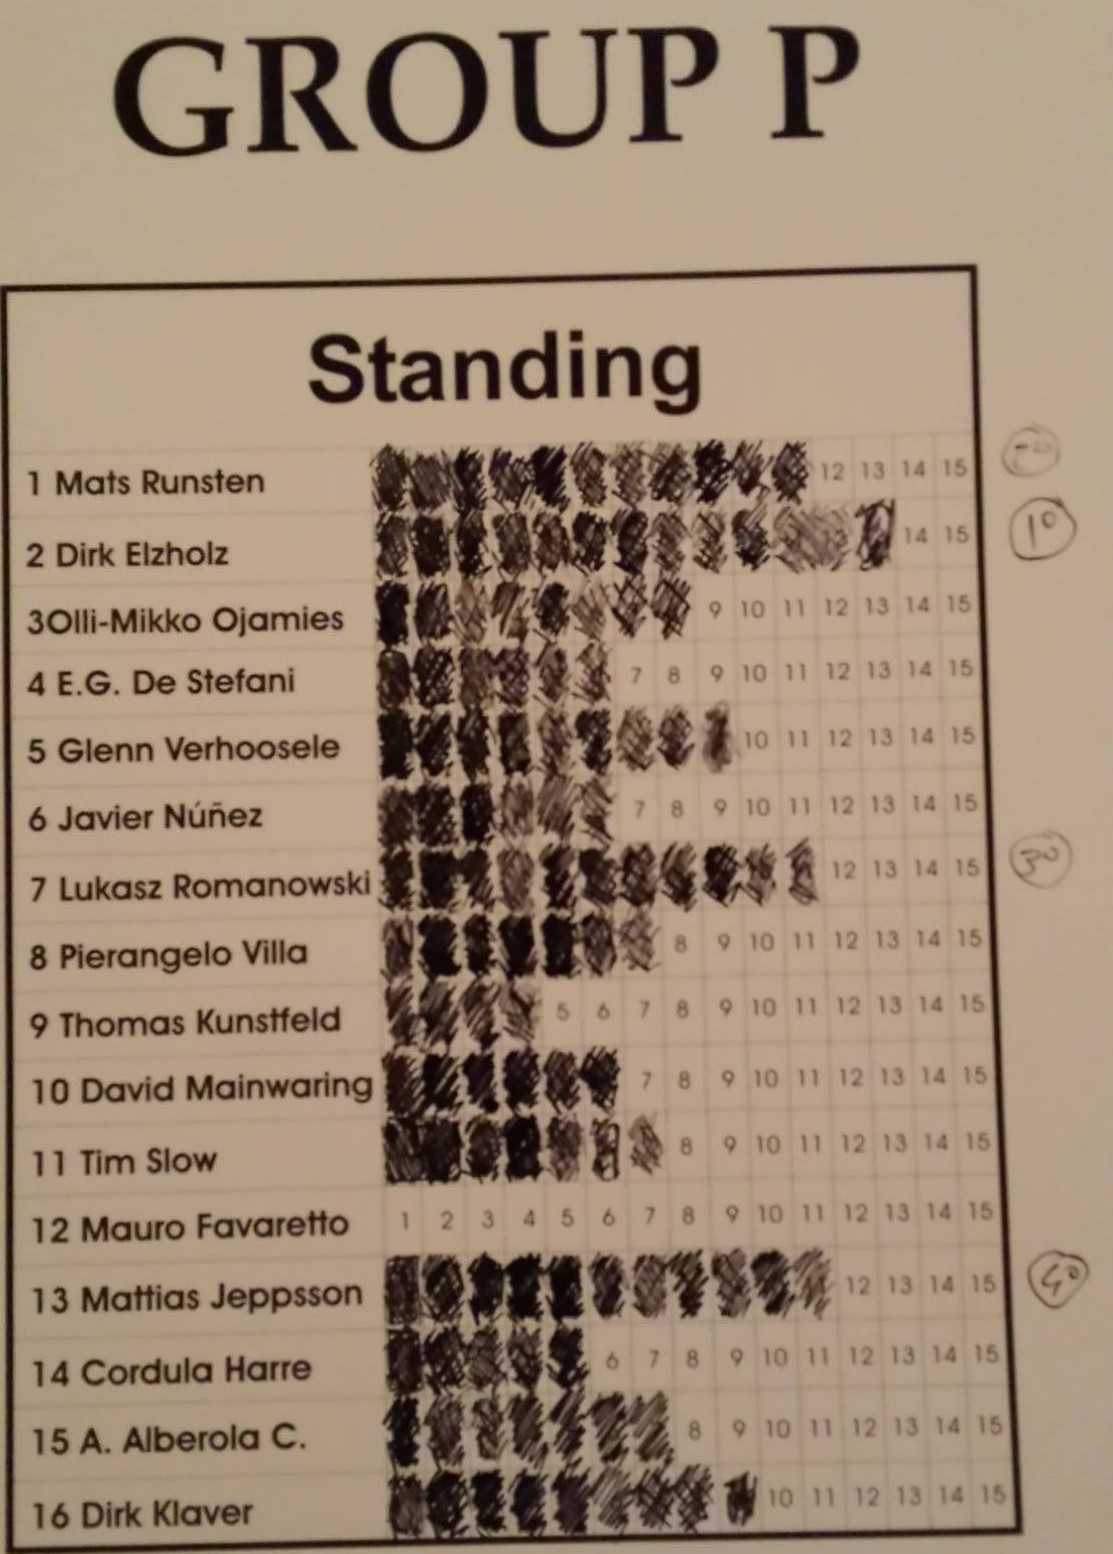 GROUP P
Standing
1 Mats Runsten 12 13 14 15 2º
2 Dirk Elzholz 14 15 1º
3Olli-Mikko Ojamies 9 10 11 12 13 14 15
4 E.G. De Stefani 7 8 9 10 11 12 13 14 15
5 Glenn Verhoosele 10 11 12 13 14 15
6 Javier Núñez 7 8 9 10 11 12 13 14 15
7 Lukasz Romanowski 12 13 14 15 3º
8 Pierangelo Villa 8 9 10 11 12 13 14 15
9 Thomas Kunstfeld 5 6 7 8 9 10 11 12 13 14 15
10 David Mainwaring 7 8 9 10 11 12 13 14 15
11 Tim Slow 8 9 10 11 12 13 14 15
12 Mauro Favaretto 1 2 3 4 5 6 7 8 9 10 11 12 13 14 15
13 Mattias Jeppsson 12 13 14 15 4º
14 Cordula Harre 6 7 8 9 10 11 12 13 14 15
15 A. Alberola C. 8 9 10 11 12 13 14 15
16 Dirk Klaver 10 11 12 13 14 15